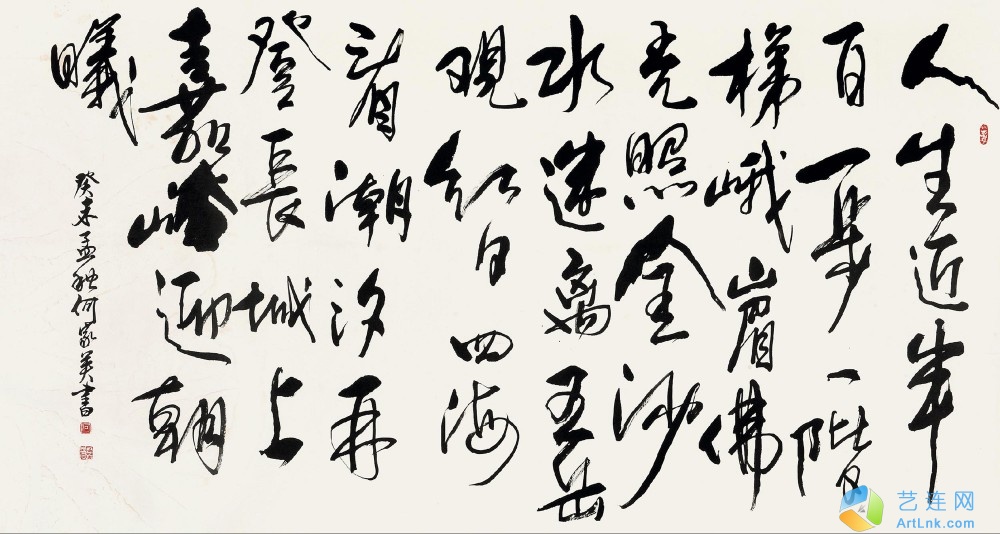 人生近半
百一步一階
梯峨嵋佛
光照金沙
水迷离五岳
現紅日四海
看潮汐再
登長城上
嘉峪迎朝
曦
癸未孟秋何家英書
艺连网
ArtLnk.com